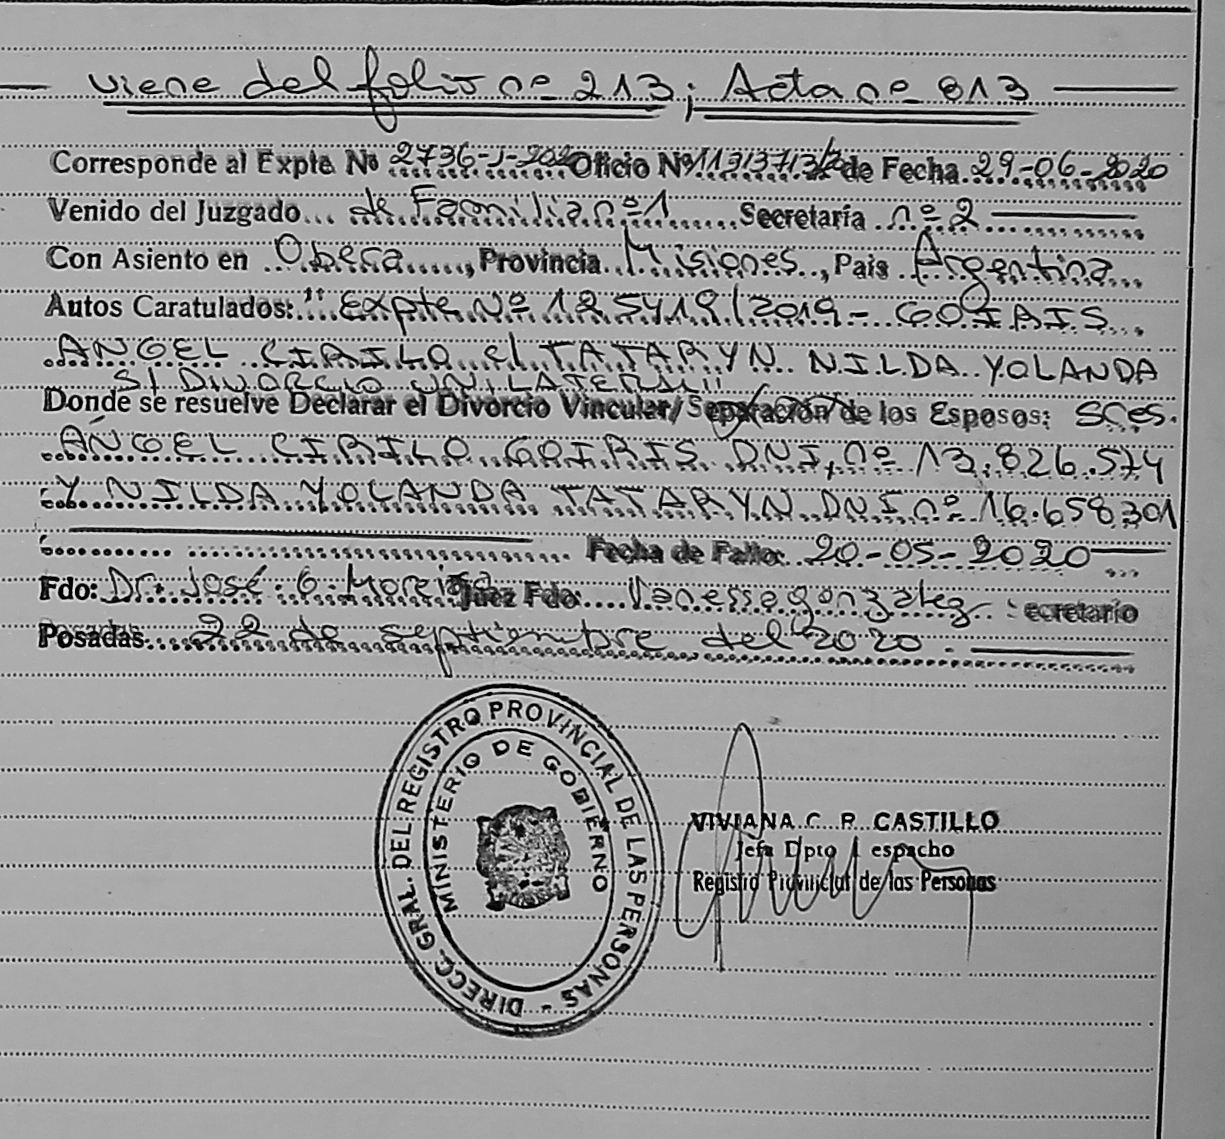 viene del folio nº 213; Acta nº 813
Corresponde al Expte. Nº 2736-J-2020 Oficio Nº de Fecha 29-06-2020
Venido del Juzgado de Familia nº 1 Secretaría nº 2
Con Asiento en Obera, Provincia Misiones, Pais Argentina
Autos Caratulados: "Expte Nº 125419/2019 - GOIRIS
ANGEL CIRILO c/ TATARYN NILDA YOLANDA
S/ DIVORCIO UNILATERAL"
Donde se resuelve Declarar el Divorcio Vincular/Separación de los Esposos: SCes.
ÁNGEL CIRILO GOIRIS DNI, nº 13.826.574
Y NILDA YOLANDA TATARYN DNI nº 16.658.301
Fecha de Fallo: 20-05-2020
Fdo: Dr. José G. Moreira Juez Fdo: Vanessa gonzalez secretario
Posadas 22 de septiembre del 2020.
DIRECC. GRAL. DEL REGISTRO PROVINCIAL DE LAS PERSONAS -
MINISTERIO DE GOBIERNO
VIVIANA C. R. CASTILLO
Jefa Dpto espacho
Registro Provincial de las Personas